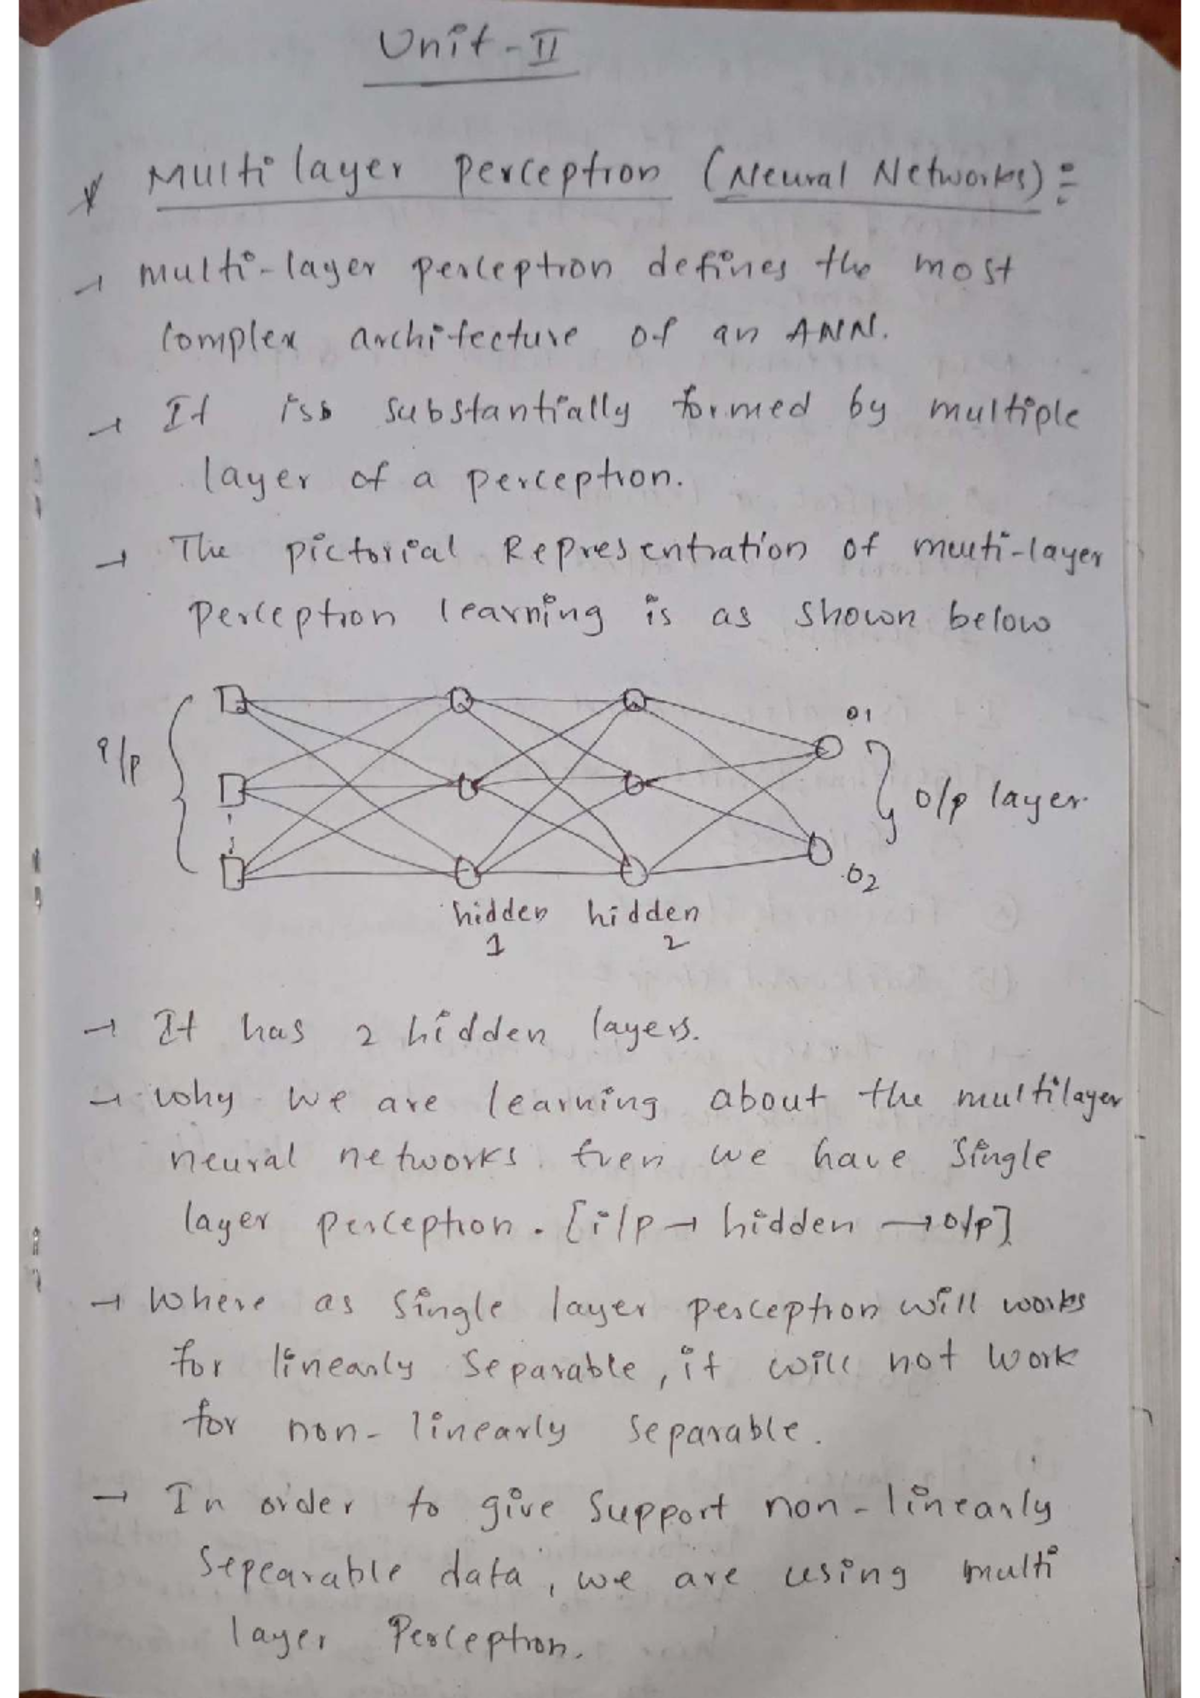 Unit-II
* Multi layer perception (Neural Networks):-
→ multi-layer perception defines the most
complex architecture of an ANN.
→ It iss substantially formed by multiple
layer of a perception.
→ The pictorial Representration of multi-layer
perception learning is as shown below
i/p
o1
o/p layer
o2
hidden hidden
1 2
→ It has 2 hidden layers.
→ why we are learning about the multilayer
neural networks. Even we have Single
layer perception. [i/p → hidden → o/p]
→ Where as Single layer perception will works
for linearly Separable, it will not work
for non-linearly separable.
→ In order to give Support non-linearly
Sepearable data, we are using multi
layer Perception.